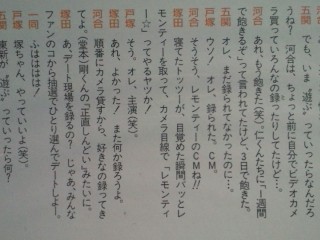 五関　でも、いま“遊ぶ”っていったらなんだろ
うね？　河合は、ちょっと前に自分でビデオカメ
ラ買っていろんなの録ったりしてたけど…。
河合　あれ、もう飽きた（笑）。仁くんたちに「1週間
で飽きるぞ」って言われてたけど、3日で飽きた。
五関　オレ、まだ録られてなかったのに…。
戸塚　ウソ！　オレ、録られた。CM。
河合　そうそう、レモンティーのCMね!!
塚田　寝てたトッツーが、目覚めた瞬間パッとレ
モンティーを取って、カメラ目線で「レモンティ
ー☆」ってやるヤツか！
戸塚　そう。オレ、主演（笑）。
塚田　あれ、よかった！　また何か録ろうよ。
河合　順番にカメラ貸すから、好きなの録ってき
てよ。（堂本）剛くんの「正直しんどい」みたいに。
塚田　あ、デート現場を録るの？　じゃあ、みんな
ファンのコから抽選でひとり選んでデートしよー。
一同　ふははははは！
戸塚　塚ちゃん、やっていいよ（笑）。
五関　東新が“遊ぶ”っていったら何？